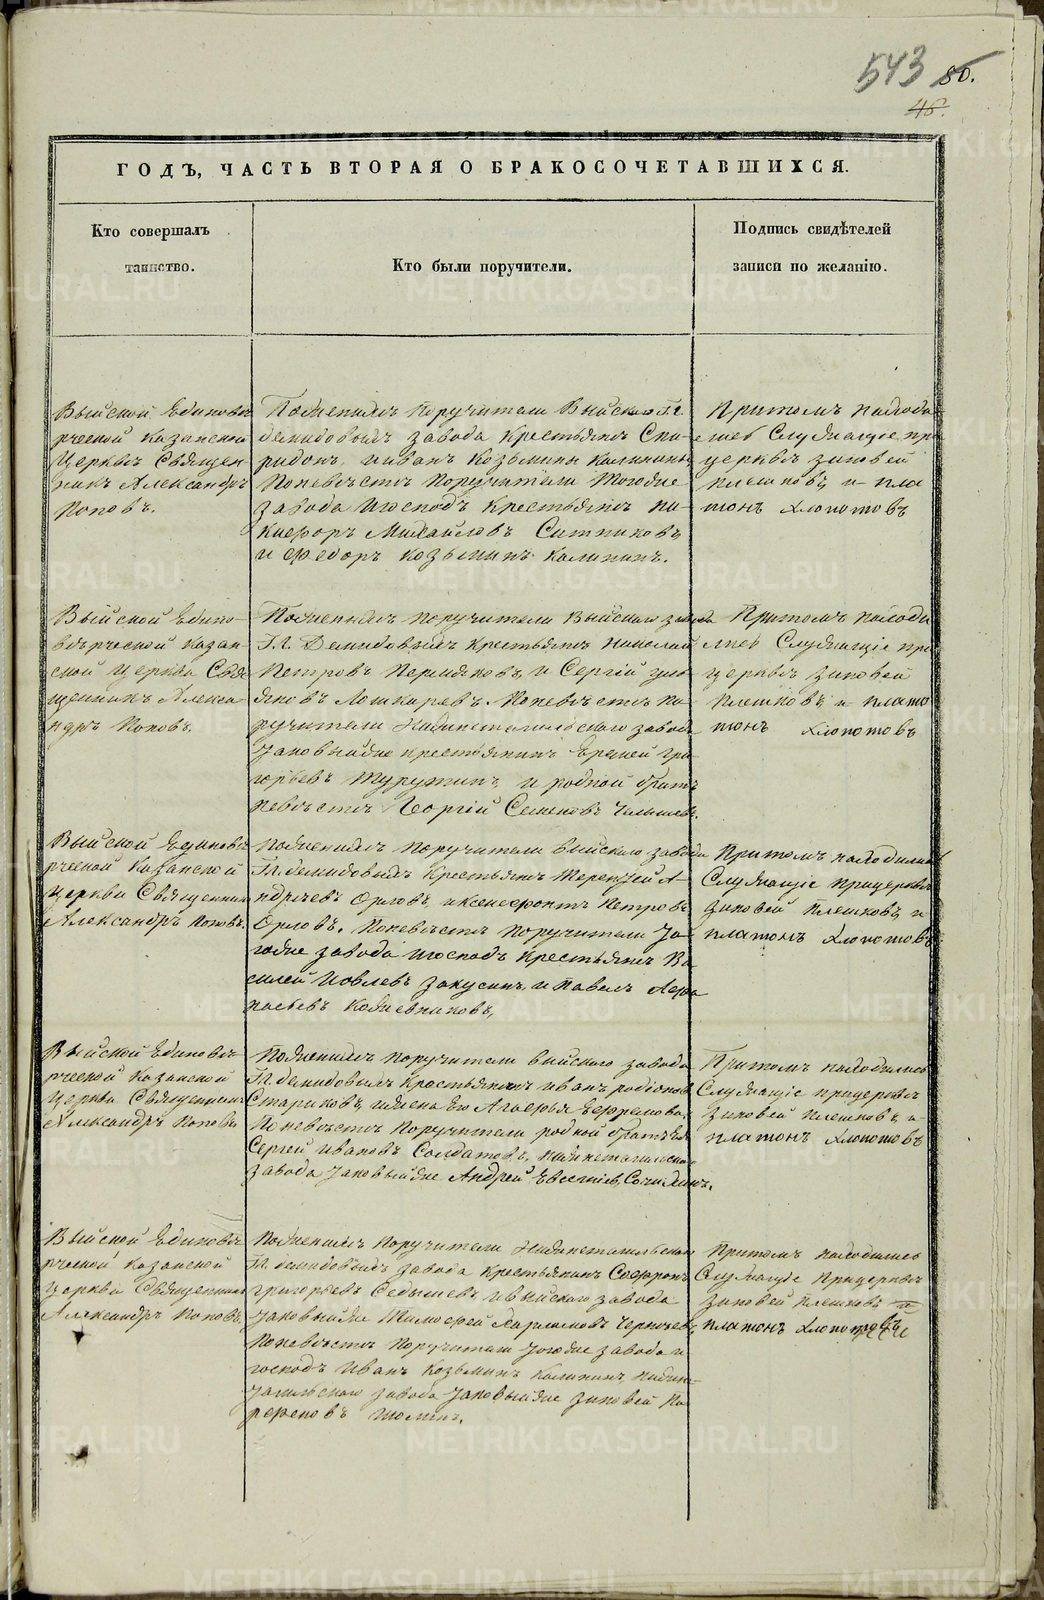 543 80.
46.
ГОДЪ, ЧАСТЬ ВТОРАЯ О БРАКОСОЧЕТАВШИХСЯ.
Кто совершалъ
таинство.
Кто были поручители.
Подпись свидѣтелей
записи по желанію.
Выйской Единовѣ
рческой Казанской
Церкви Священ
никъ Александръ
Поповъ.
Поженихѣ поручители Выйскаго Гг.
демидовыхъ завода крестьяне Спи-
ридонъ, ииванъ Козьмины Калинины
Поневѣстѣ поручители тогоже
завода игосподъ крестьяне ни-
кифоръ Михайловъ Ситниковъ
и Федоръ Козьминъ Калининъ.
Притомъ находи
лись Служащіе при
церквѣ зиновей
плешковъ, и пла
тонъ Хлопотовъ
Выйской Едино-
вѣрческой Казан
ской церкви Свя
щенникъ Алекса
ндръ Поповъ.
Поженихѣ поручители Выйскаго завода
Гг. Демидовыхъ крестьяне Николай
Петровъ Пермяковъ, и Сергій
Лошкаревъ. Поневѣстѣ по
ручители Нижнетагильскаго завода
таковыйже крестьянинъ Ермей гри
горьевъ и родной братъ
невѣсты Георгій Семеновъ
Притомъ находи
лись Служащіе при
церквѣ Зиновей
Плешковъ, и плато
тонъ Хлопотовъ
Выйской Единовѣ
рческой Казанской
церкви Священникъ
Александръ Поповъ.
Поженихѣ поручители выйскаго завода
Гг. демидовыхъ Крестьяне Терентей А-
ндреевъ Орловъ, иксенофонтъ Петровъ
Орловъ. Поневѣстѣ поручители То-
гоже завода игосподъ крестьяне Ва
силей Иовлевъ Закусинъ, и Павелъ Афа
насьевъ Кожевниковъ,
Притомъ находились
Служащіе прицерквѣ
Зиновей Плешковъ, и
платонъ Хлопотовъ
Выйской Единовѣ
рческой Казанской
церкви Священникъ
Александръ Поповъ
Поженихѣ поручители выйскаго завода
Гг. демидовыхъ крестьянинъ иванъ родіонов
Стариковъ, ижена Его Агафья Ефремова,
Поневѣстѣ поручители родной братъ Ея
Сергей ивановъ Солдатовъ, нижнетагильскаго
завода таковыйже Андрей Евсегніевъ
Притомъ находились
Служащіе прицерквѣ
Зиновей плешковъ, и
платонъ Хлопотовъ
Выйской Единовѣ
рческой Казанской
церкви Священникъ
Александръ Поповъ,
Поженихѣ поручители Нижнетагильскаго
Гг. демидовыхъ завода крестьянинъ Софронъ
григорьевъ Седышевъ ивыйскаго завода
таковыйже Тимофей
Поневѣстѣ поручители тогоже завода и
господъ Иванъ Козьминъ Калининъ, нижне
тагильскаго завода таковыйже зиновей Па
рфеновъ
Притомъ находились
Служащіе прицерквѣ
Зиновей плешковъ и
платонъ Хлопотовъ
METRIKI.GASO-URAL.RU